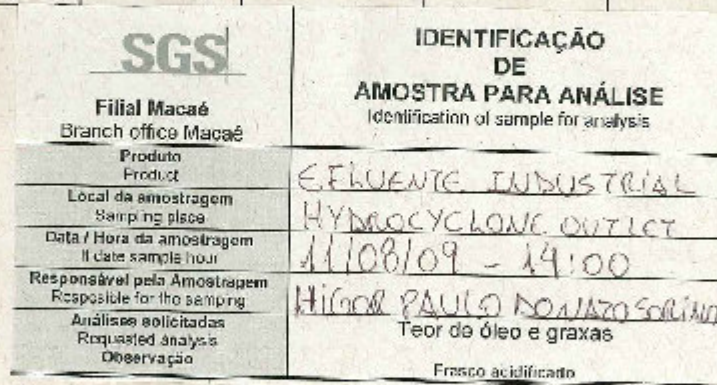 SGS
Filial Macaé
Branch office Macaé
IDENTIFICAÇÃO
DE
AMOSTRA PARA ANÁLISE
Identification of sample for analysis
Produto
Product
EFLUENTE INDUSTRIAL
Local da amostragem
Sampling place
HYDROCYCLONE OUTLET
Data / Hora da amostragem
date sample hour
11/08/09 - 14:00
Responsável pela Amostragem
Resposible for the samping
HIGOR PAULO DONATO
Análises solicitadas
Requested analysis
Observação
Teor de óleo e graxas
Frasco acidificado